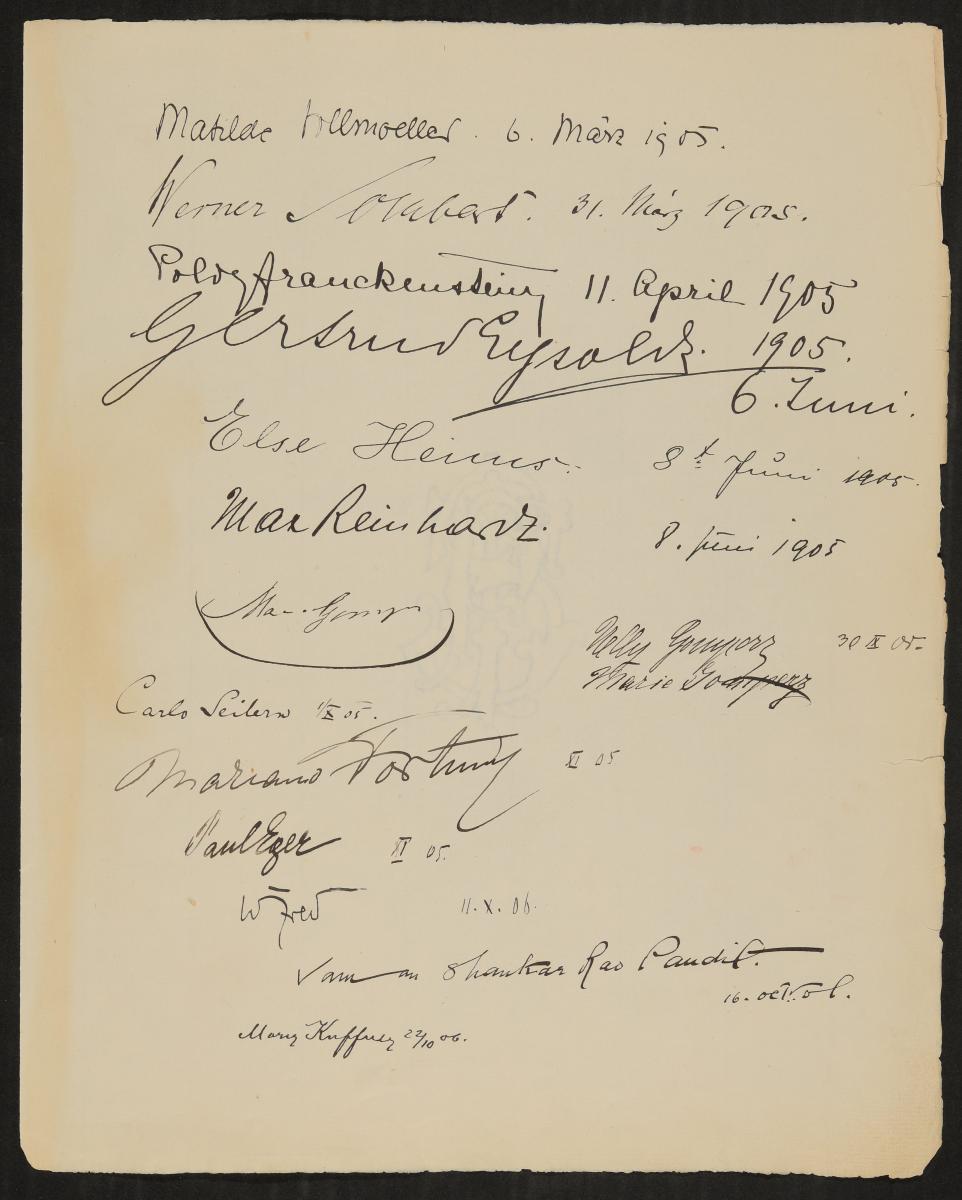 Matilde Vollmoeller. 6. März 1905.
Werner Sombart. 31. März 1905.
Poldy Franckenstein 11. April 1905
Gertrud Eysoldt. 1905.
6. Juni.
Else Heims. 8t Juni 1905.
Max Reinhardt. 8. Juni 1905
Nelly Gomperz 30 IX 05-
Marie Gomperz
Carlo Seilern 1/X 05.
Mariano Fortuny XI 05
Paul Eger XI 05.
W Fred 11. X. 06.
Vaman Shankar Rao Pandit.
16. Oct. 06.
Mary Kuffner 22/10 06.